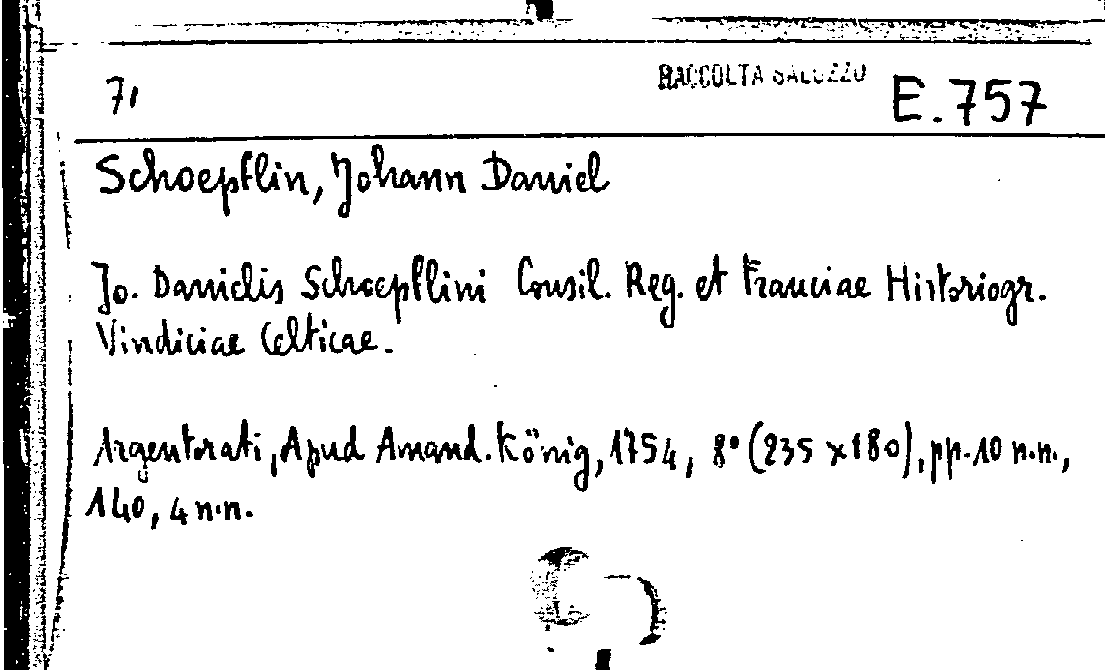 71
RACCOLTA SALUZZO
E.757
Schoepflin, Johann Daniel
Jo. Danielis Schoepflini Consil. Reg. et Franciae Historiogr.
Vindiciae Celticae.
Argentorati, Apud Amand. König, 1754, 8° (235 x 180), pp. 10 n.n.,
140, 4 n.n.